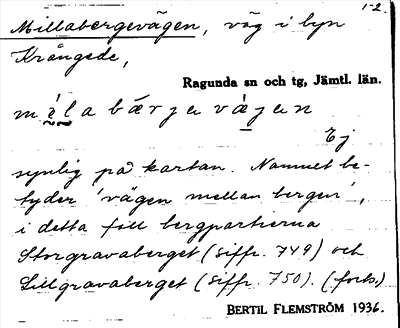 1-2.
Millabergevägen, väg i byn
Krångede,
Ragunda sn och tg, Jämtl. län.
Ej
synlig på kartan. Namnet be-
tyder 'vägen mellan bergen',
i detta fall bergpartierna
Storgravaberget (siffr. 749) och
Lillgravaberget (siffr. 750). (forts.)
BERTIL FLEMSTRÖM 1936.